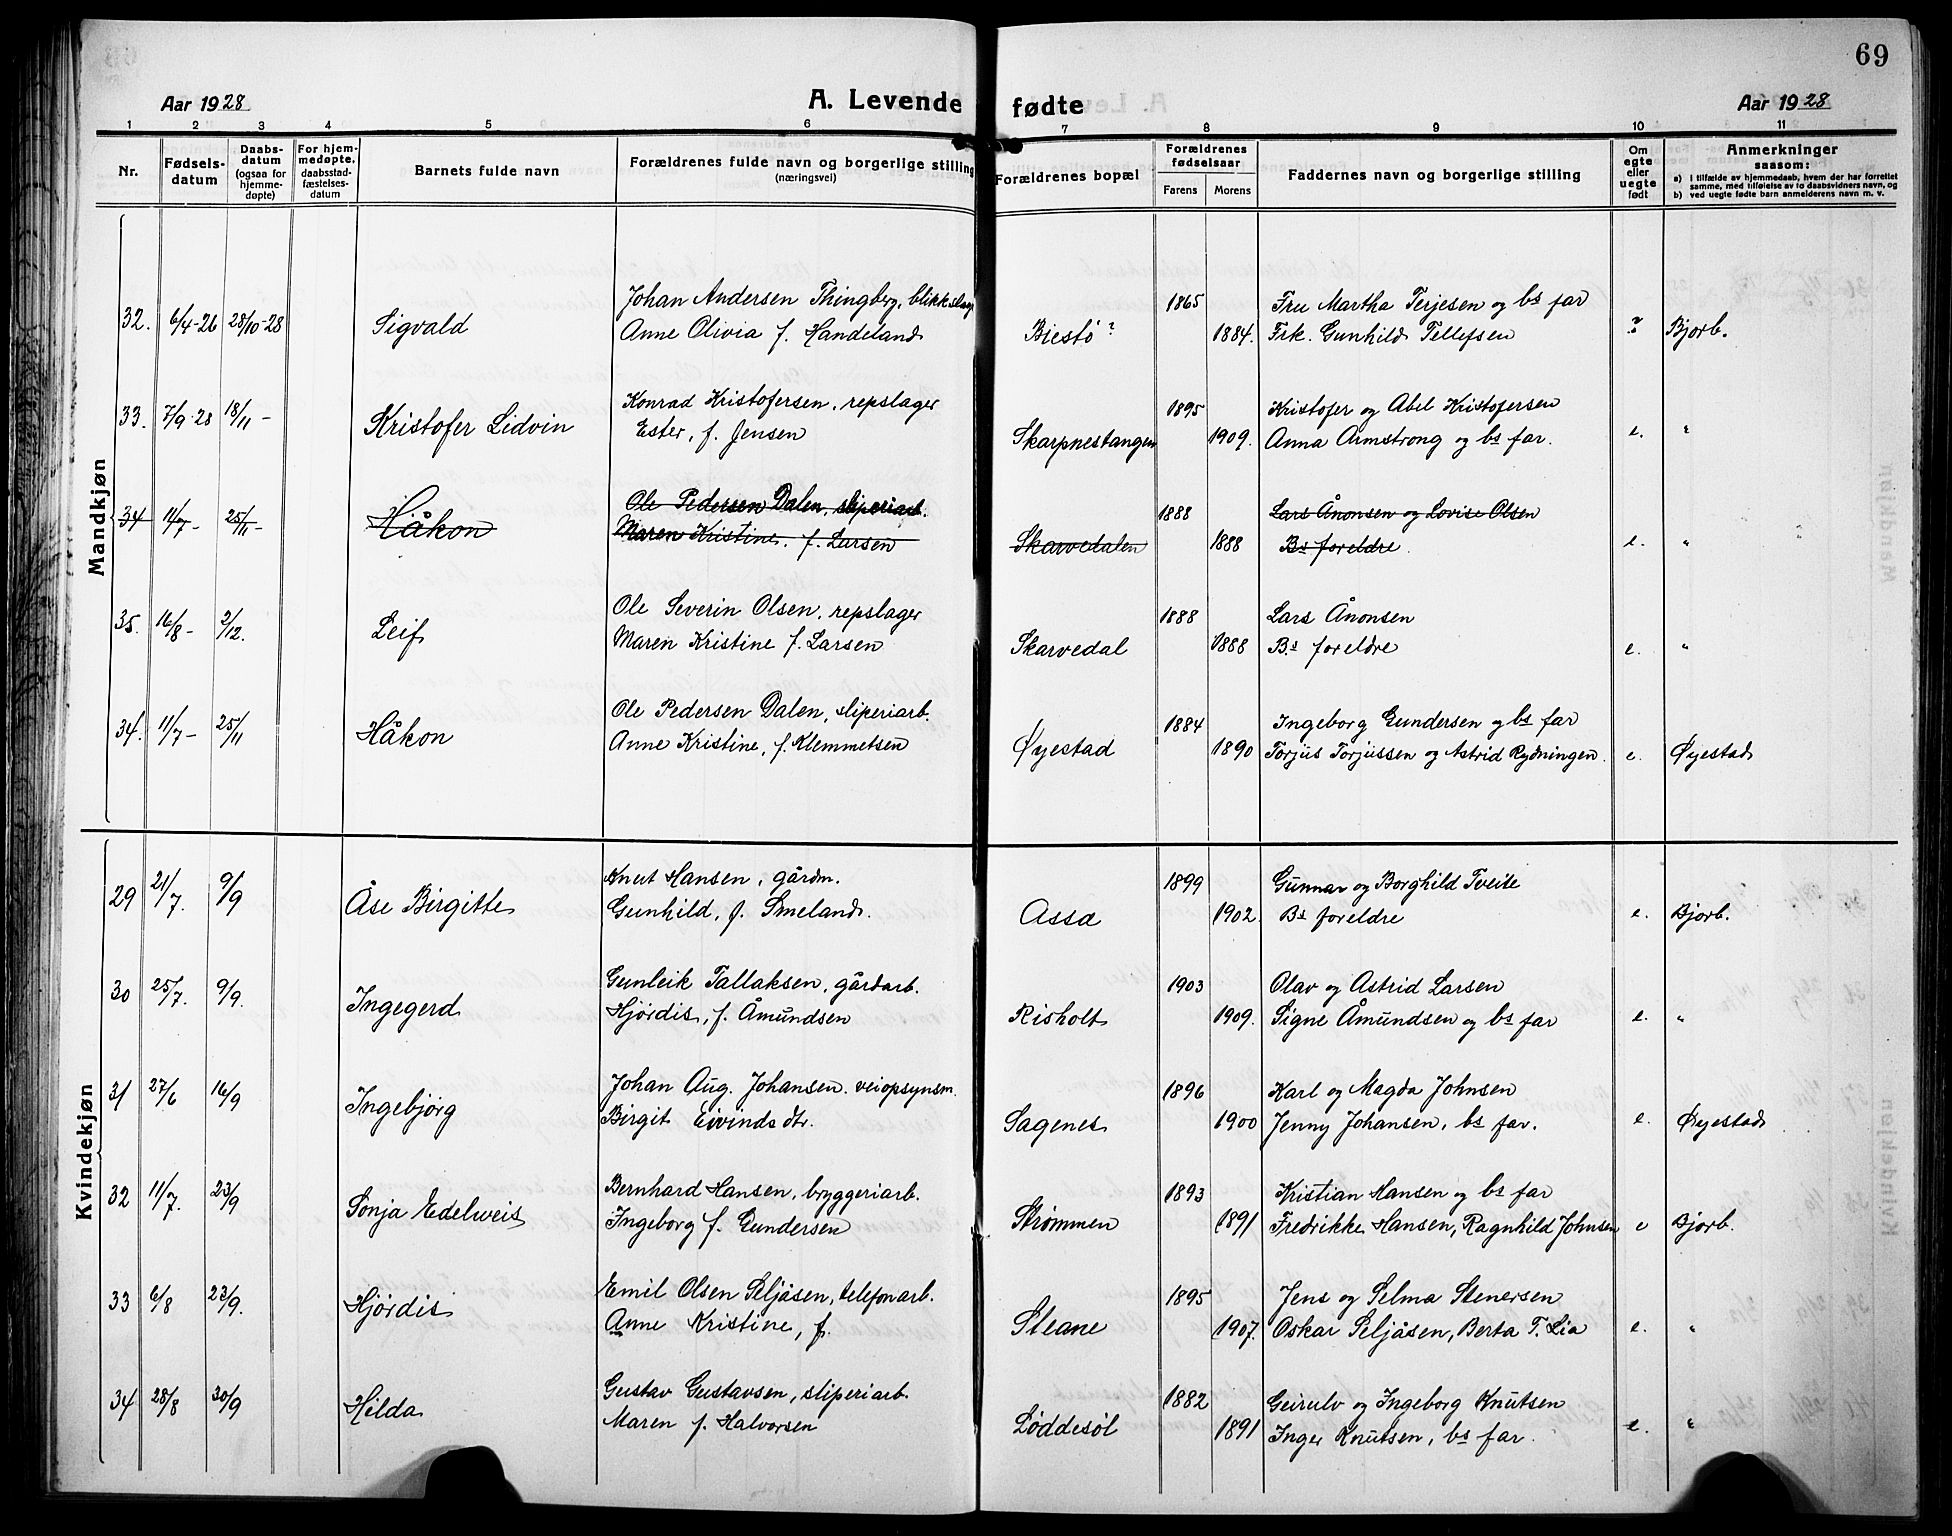 69
Aar 1928
A. Levende fødte
Aar 1928
1 2 3 4 5 6 7 8 9 10 11
Nr.
Fødsels-
datum
Daabs-
datum
(ogsaa for
hjemme-
døpte)
For hjem-
medøpte,
daabsstad-
fæstelses-
datum
Barnets fulde navn
Forældrenes fulde navn og borgerlige stilling
(næringsvei)
Forældrenes bopæl
Forældrenes
fødselsaar
Farens Morens
Faddernes navn og borgerlige stilling
Om
egte
eller
uegte
født
Anmerkninger
saasom:
a) i tilfælde av hjemmedaab, hvem der har forrettet
samme, med tilføielse av to daabsvidners navn, og
b) ved uegte fødte barn anmelderens navn m. v.
Mandkjøn
Johan Andersen Thingberg, blikkslag 1865 Fru Martha Terjesen og bs far
32. 6/4-26 28/10-28 Sigvald Anne Olivia f. Handeland Biestø? 1884. Frk. Gunhild Tellefsen ? Bjorb.
Konrad Kristofersen, repslager 1895 Kristofer og Abel Kristofersen
33. 7/9-28 18/11- Kristofer Lidvin Ester, f. Jensen Skarpnestangen 1909. Anna Armstrong og bs far. e. "
Ole Pedersen Dalen, sliperiarb. 1888 Lars Ånonsen og Lovise Olsen
34 11/7- 25/11- Håkon Maren Kristine. f. Larsen Skarvedalen 1888 Bs foreldre. e. "
Ole Severin Olsen, repslager 1888 Lars Ånonsen
35. 16/8- 2/12. Leif Maren Kristine f. Larsen Skarvedal 1888 Bs foreldre e. "
Ole Pedersen Dalen, sliperiarb. 1884 Ingeborg Gundersen og bs far
34. 11/7- 25/11 Håkon Anne Kristine, f. Klemmetsen Øyestad 1890 Torjus Torjussen og Astrid Rydningen. e. Øyestad
Kvindekjøn
Knut Hansen, gårdm. 1899 Gunnar og Borghild Tveite
29 21/7. 9/9 Åse Birgitte Gunhild, f. Smeland. Assa 1902. Bs foreldre e. Bjorb.
Gunleik Tallaksen, gårdarb. 1903 Olav og Astrid Larsen
30 25/7. 9/9. Ingegerd Hjørdis, f. Åmundsen Risholt 1909. Signe Åmundsen og bs far e. "
Johan Aug. Johansen. veiopsynsm. 1896 Karl og Magda Johnsen
31 27/6 16/9 Ingebjørg Birgit Eivindsdtr. Sagenes 1900 Jenny Johansen, bs far. e. Øyestad
Bernhard Hansen, bryggeriarb. 1893 Kristian Hansen og bs far
32 11/7. 23/9 Sonja Edelweis Ingeborg f. Gundersen Strømmen 1891 Fredrikke Hansen, Ragnhild Johnsen e Bjorb.
Emil Olsen Seljåsen, telefonarb. 1895 Jens og Selma Stenersen
33 6/8 23/9. Hjørdis Anne Kristine, f. Steane 1907. Oskar Seljåsen, Berta T. Lia e. "
Gustav Gustavsen, sliperiarb. 1882 Geirulv og Ingeborg Knutsen
34 28/8 30/9 Hilda Maren f. Halvorsen Løddesøl 1891 Inger Knutsen, bs far. e. "